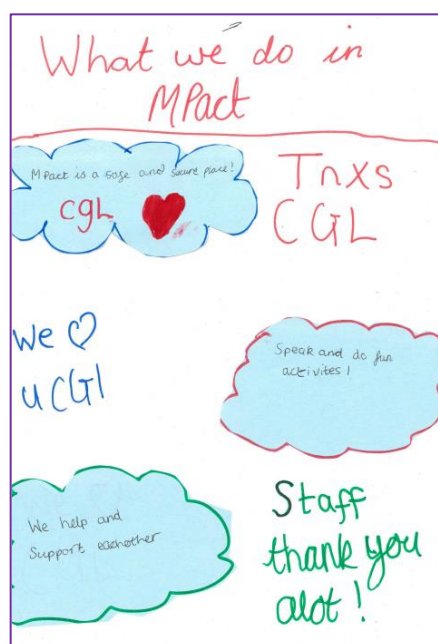 What we do in
MPact
MPact is a safe and secure place!
cgL
Tnxs
CGL
We ♡
u CGl
Speak and do fun
activites!
We help and
Support eachother
Staff
thank you
alot!